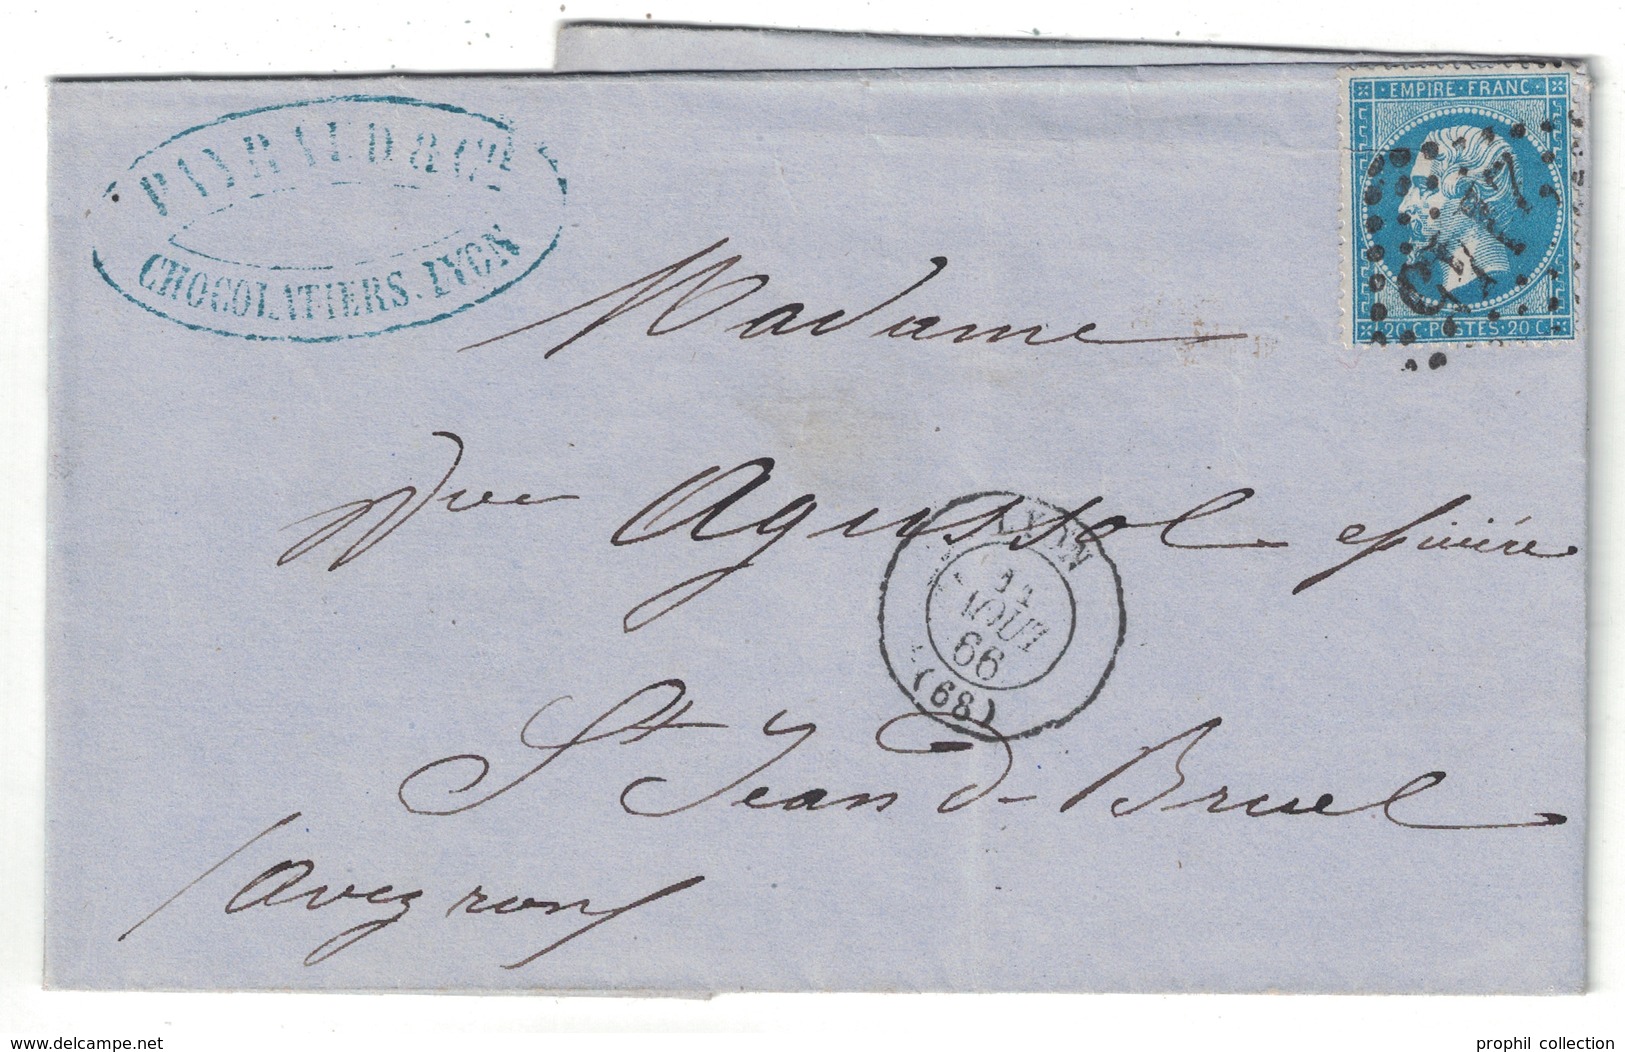 PAYRAUD & Cie
CHOCOLATIERS. LYON
EMPIRE · FRANC ·
20 C · POSTES · 20 C
Madame
Vve Agussol épicière
LYON
11
AOUT
66
(68)
St Jean d- Bruel
(aveyron)
www.delcampe.net
prophil collection